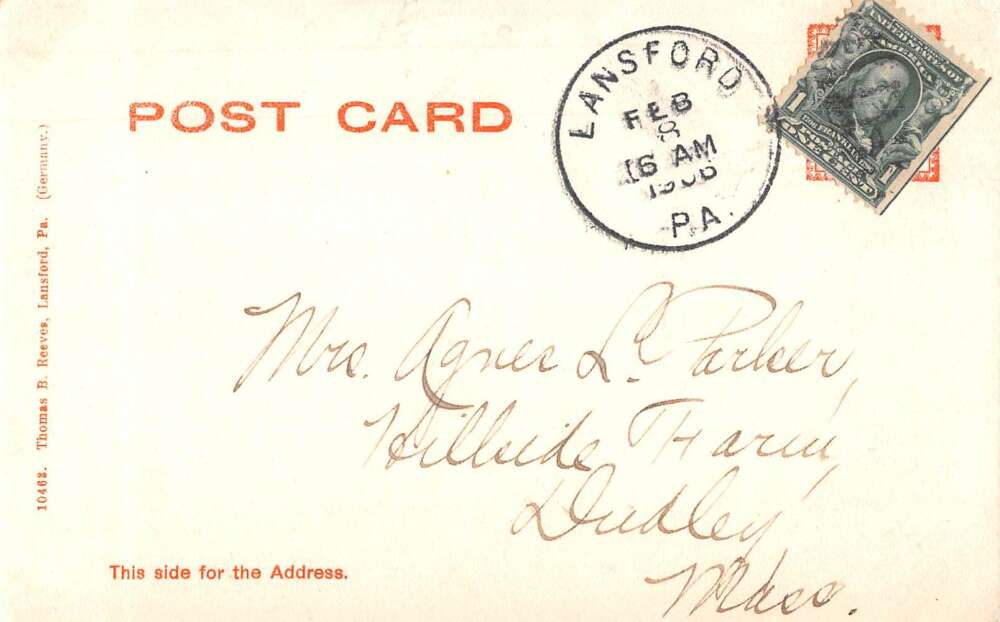 POST CARD
LANSFORD
FEB
8
6 AM
1906
PA.
UNITED STATES OF
AMERICA
1 1
POSTAGE
ONE CENT
10463. Thomas B. Reeves, Lansford, Pa. (Germany.)
Mrs. Agnes L. Parker,
Hillside Farm,
Dudley,
Mass.
This side for the Address.